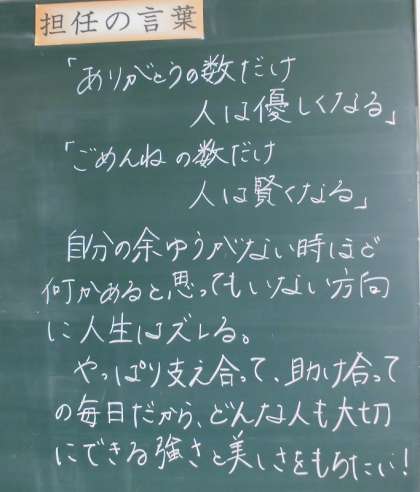 担任の言葉
「ありがとうの数だけ
人は優しくなる」
「ごめんねの数だけ
人は賢くなる」
自分の余ゆうがない時ほど
何かあると思ってもいない方向
に人生はズレる。
やっぱり支え合って、助け合って
の毎日だから、どんな人も大切
にできる強さと美しさをもちたい！